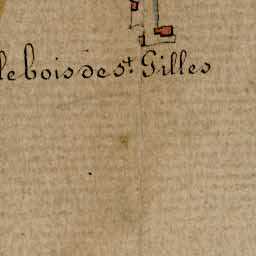 le bois de St. Gilles